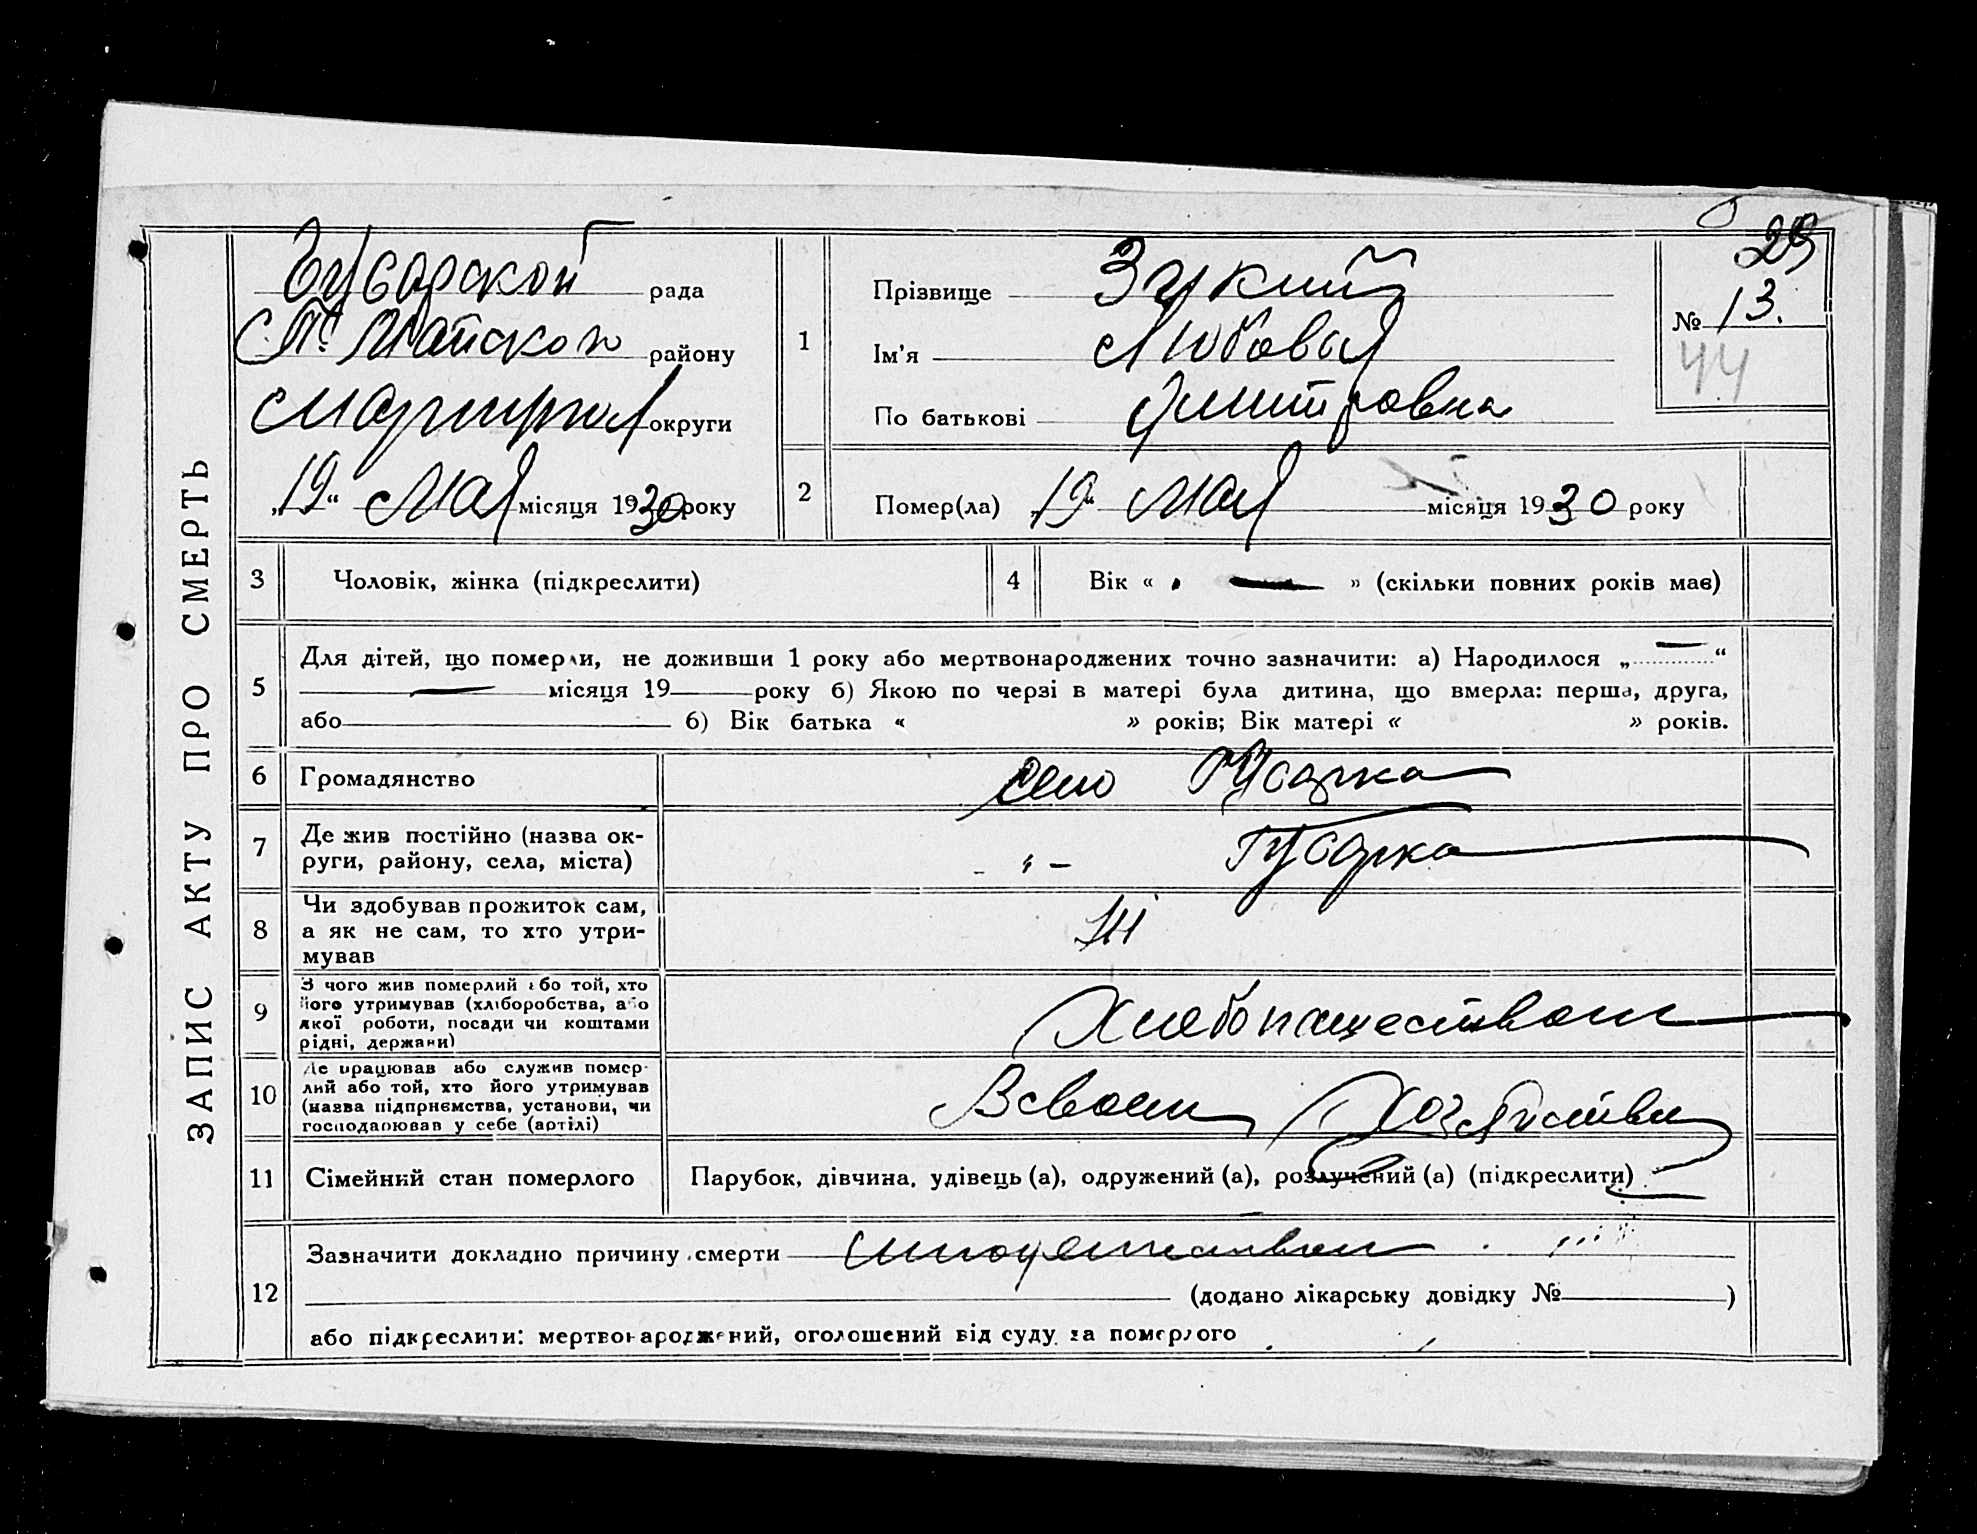 29
Гусарской рада
Ст. Майского району
Мариупол округи
„19“ Мая місяця 1930 року
№ 13.
44
ЗАПИС АКТУ ПРО СМЕРТЬ
1
Прізвище Зукий
Ім'я Любовья
По батькові Дмитровна
2
Помер(ла) „19“ Мая місяця 1930 року
3 Чоловік, жінка (підкреслити)
4 Вік « — » (скільки повних років має)
5 Для дітей, що померли, не доживши 1 року або мертвонароджених точно зазначити: а) Народилося „ — “
— місяця 19 року б) Якою по черзі в матері була дитина, що вмерла: перша, друга,
або б) Вік батька « » років; Вік матері « » років.
6 Громадянство село Гусарка
7 Де жив постійно (назва ок-
руги, району, села, міста) - „ - Гусарка
8 Чи здобував прожиток сам,
а як не сам, то хто утри-
мував
9 З чого жив померлий або той, хто
його утримував (хліборобства, або
якої роботи, посади чи коштами
рідні, держави) Хлебопашеством
10 Де працював або служив помер-
лий або той, хто його утримував
(назва підприємства, установи, чи
господарював у себе (артілі) В своем Хозяйстви
11 Сімейний стан померлого Парубок, дівчина, удівець (а), одружений (а), розлучений (а) (підкреслити)
12 Зазначити докладно причину смерти
(додано лікарську довідку № )
або підкреслити: мертвонароджений, оголошений від суду за померлого